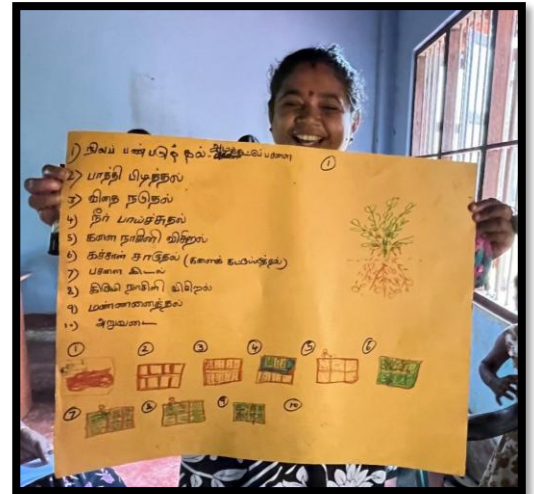 1) நிலம் பண்படுத்தல் - பசளை
2) பாத்தி பிடித்தல்
3) விதை நடுதல்
4) நீர் பாய்ச்சுதல்
5) களை நாசினி விசிறல்
6) கச்சான் சாறுதல் (களைக் கட்டுப்படுத்தல்)
7) பசளை இடல்
8) கிருமி நாசினி விசிறல்
9) மண்ணணைத்தல்
10) அறுவடை
1
1 2 3 4 5 6
7 8 9 10